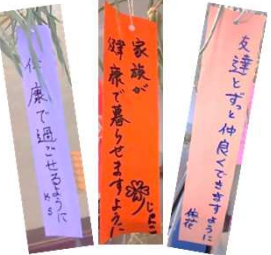 健康で過ごせるように
K S
家族が
健康で暮らせますように
じゅんこ
友達とずっと仲良くできますように